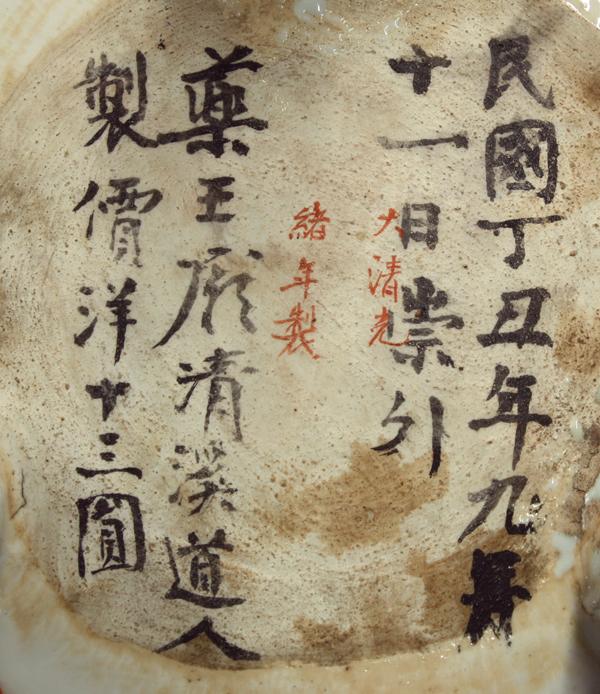 民國丁丑年九
十一日崇外
藥王廟清溪道人
製價洋十三圓
大清光
緒年製